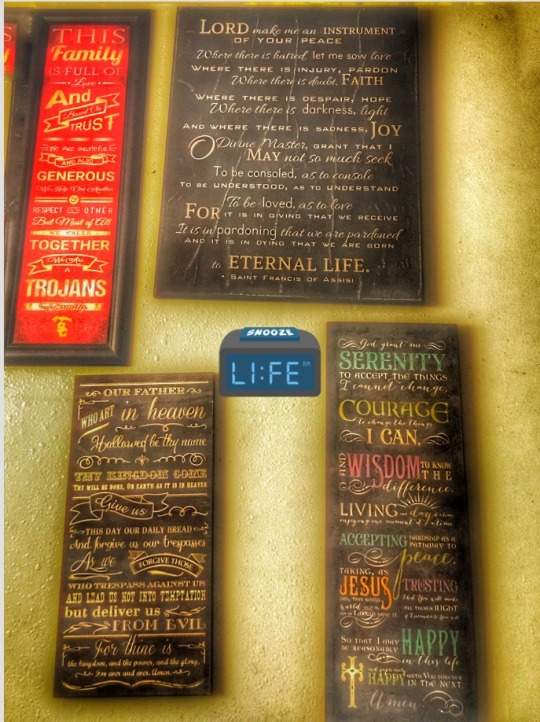 THIS
Family
IS FULL OF
Love
And
Bound By
TRUST
We Are Grateful
AND ALSO
GENEROUS
We Help One Another
RESPECT EACH OTHER
But Most of All
TOGETHER
We Are
A
TROJANS
Family
LORD make me an INSTRUMENT
OF YOUR PEACE
Where there is hatred, let me sow love
WHERE THERE IS INJURY, PARDON
Where there is doubt, FAITH
WHERE THERE IS DESPAIR, HOPE
Where there is darkness, light
AND WHERE THERE IS SADNESS, JOY
O Divine Master, GRANT THAT I
MAY not so much seek
To be consoled, as to console
TO BE UNDERSTOOD, AS TO UNDERSTAND
To be loved, as to love
FOR IT IS IN GIVING THAT WE RECEIVE
It is in pardoning that we are pardoned
AND IT IS IN DYING THAT WE ARE BORN
to ETERNAL LIFE.
- SAINT FRANCIS OF ASSISI
SNOOZE
LI:FE
AM
OUR FATHER
WHO ART in heaven
Hallowed be thy name
THY KINGDOM COME
THY WILL BE DONE, ON EARTH AS IT IS IN HEAVEN
Give us
THIS DAY OUR DAILY BREAD
And forgive us our trespasses
As we FORGIVE THOSE
WHO TRESPASS AGAINST US
AND LEAD US NOT INTO TEMPTATION
but deliver us
FROM EVIL
For thine is
the kingdom, and the power, and the glory,
For ever and ever. Amen.
God grant me
SERENITY
TO ACCEPT THE THINGS
I cannot change,
COURAGE
to change the things
I CAN,
AND WISDOM TO KNOW
THE
difference.
LIVING one day at a time
enjoying one moment at a time
ACCEPTING HARDSHIP AS A
PATHWAY TO
peace.
TAKING, AS
JESUS
TRUSTING
that You will make
ALL THINGS RIGHT
SO THAT I MAY
BE REASONABLY HAPPY
in this life
HAPPY WITH YOU FOREVER
IN THE NEXT
Amen